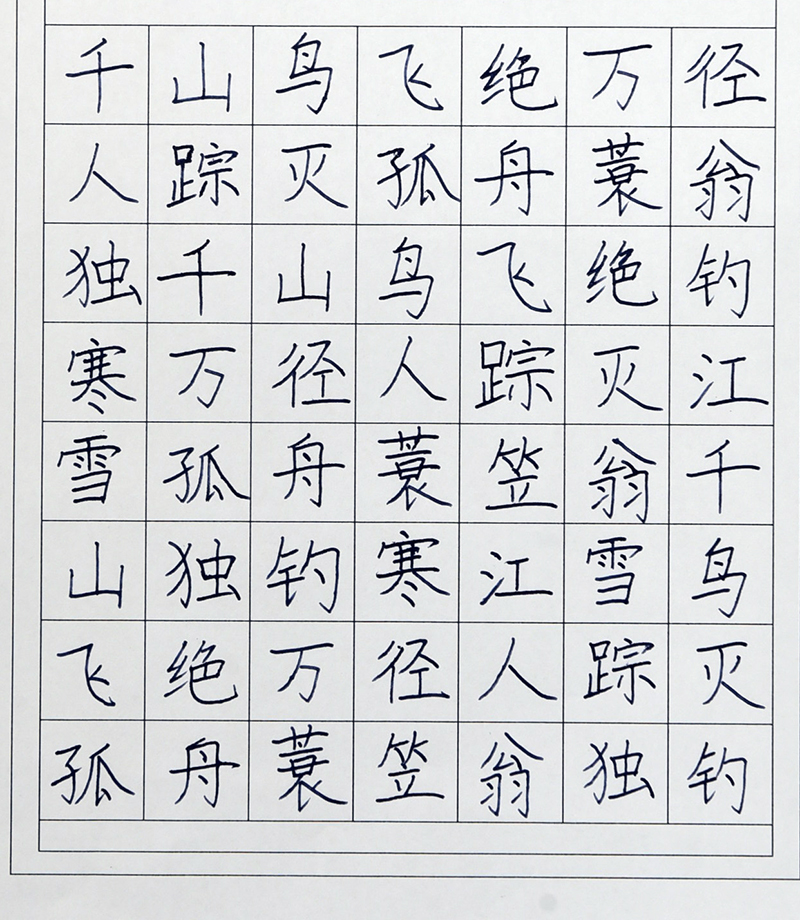 千山鸟飞绝万径
人踪灭孤舟蓑翁
独千山鸟飞绝钓
寒万径人踪灭江
雪孤舟蓑笠翁千
山独钓寒江雪鸟
飞绝万径人踪灭
孤舟蓑笠翁独钓